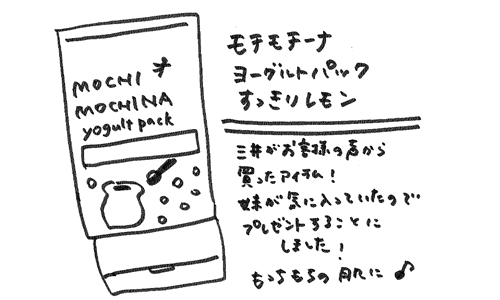 MOCHI
MOCHINA
yogult pack
モチモチーナ
ヨーグルトパック
すっきりレモン
三井がお客様の声から
買ったアイテム!
妹が気に入っていたので
プレゼントすることに
しました!
もっちもちの肌に♪